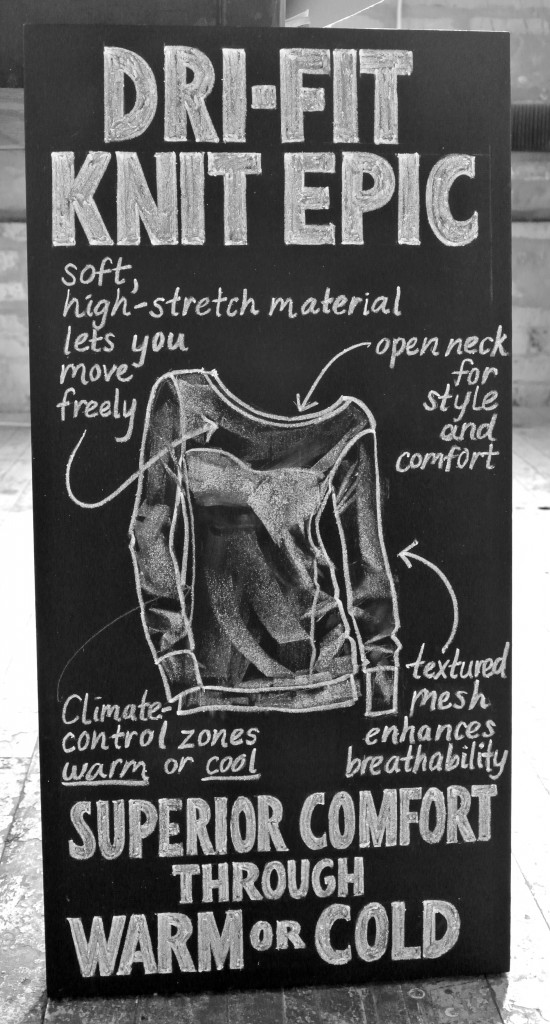 DRI-FIT
KNIT EPIC
soft,
high-stretch material
lets you
move
freely
open neck
for
style
and
comfort
textured
mesh
enhances
breathability
Climate-
control zones
warm or cool
SUPERIOR COMFORT
THROUGH
WARM OR COLD